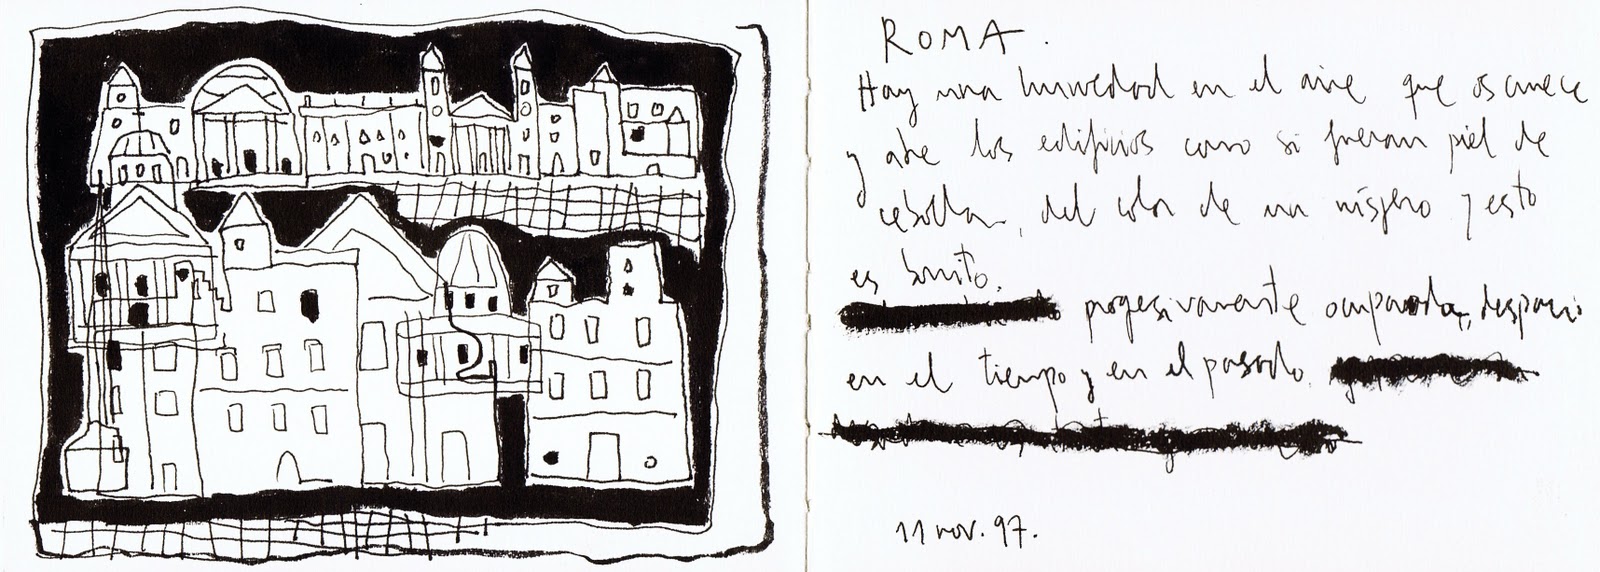 ROMA.
Hay una humedad en el aire que oscurece
y abre los edificios como si fueran piel de
cebolla, del color de un níspero y esto
es bonito.
progesivamente despacio
en el tiempo y en el pasado.
11 nov. 97.